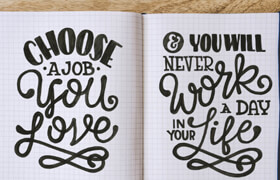 CHOOSE
A JOB
You
Love
& YOU WILL
NEVER
Work
A DAY
IN YOUR
Life